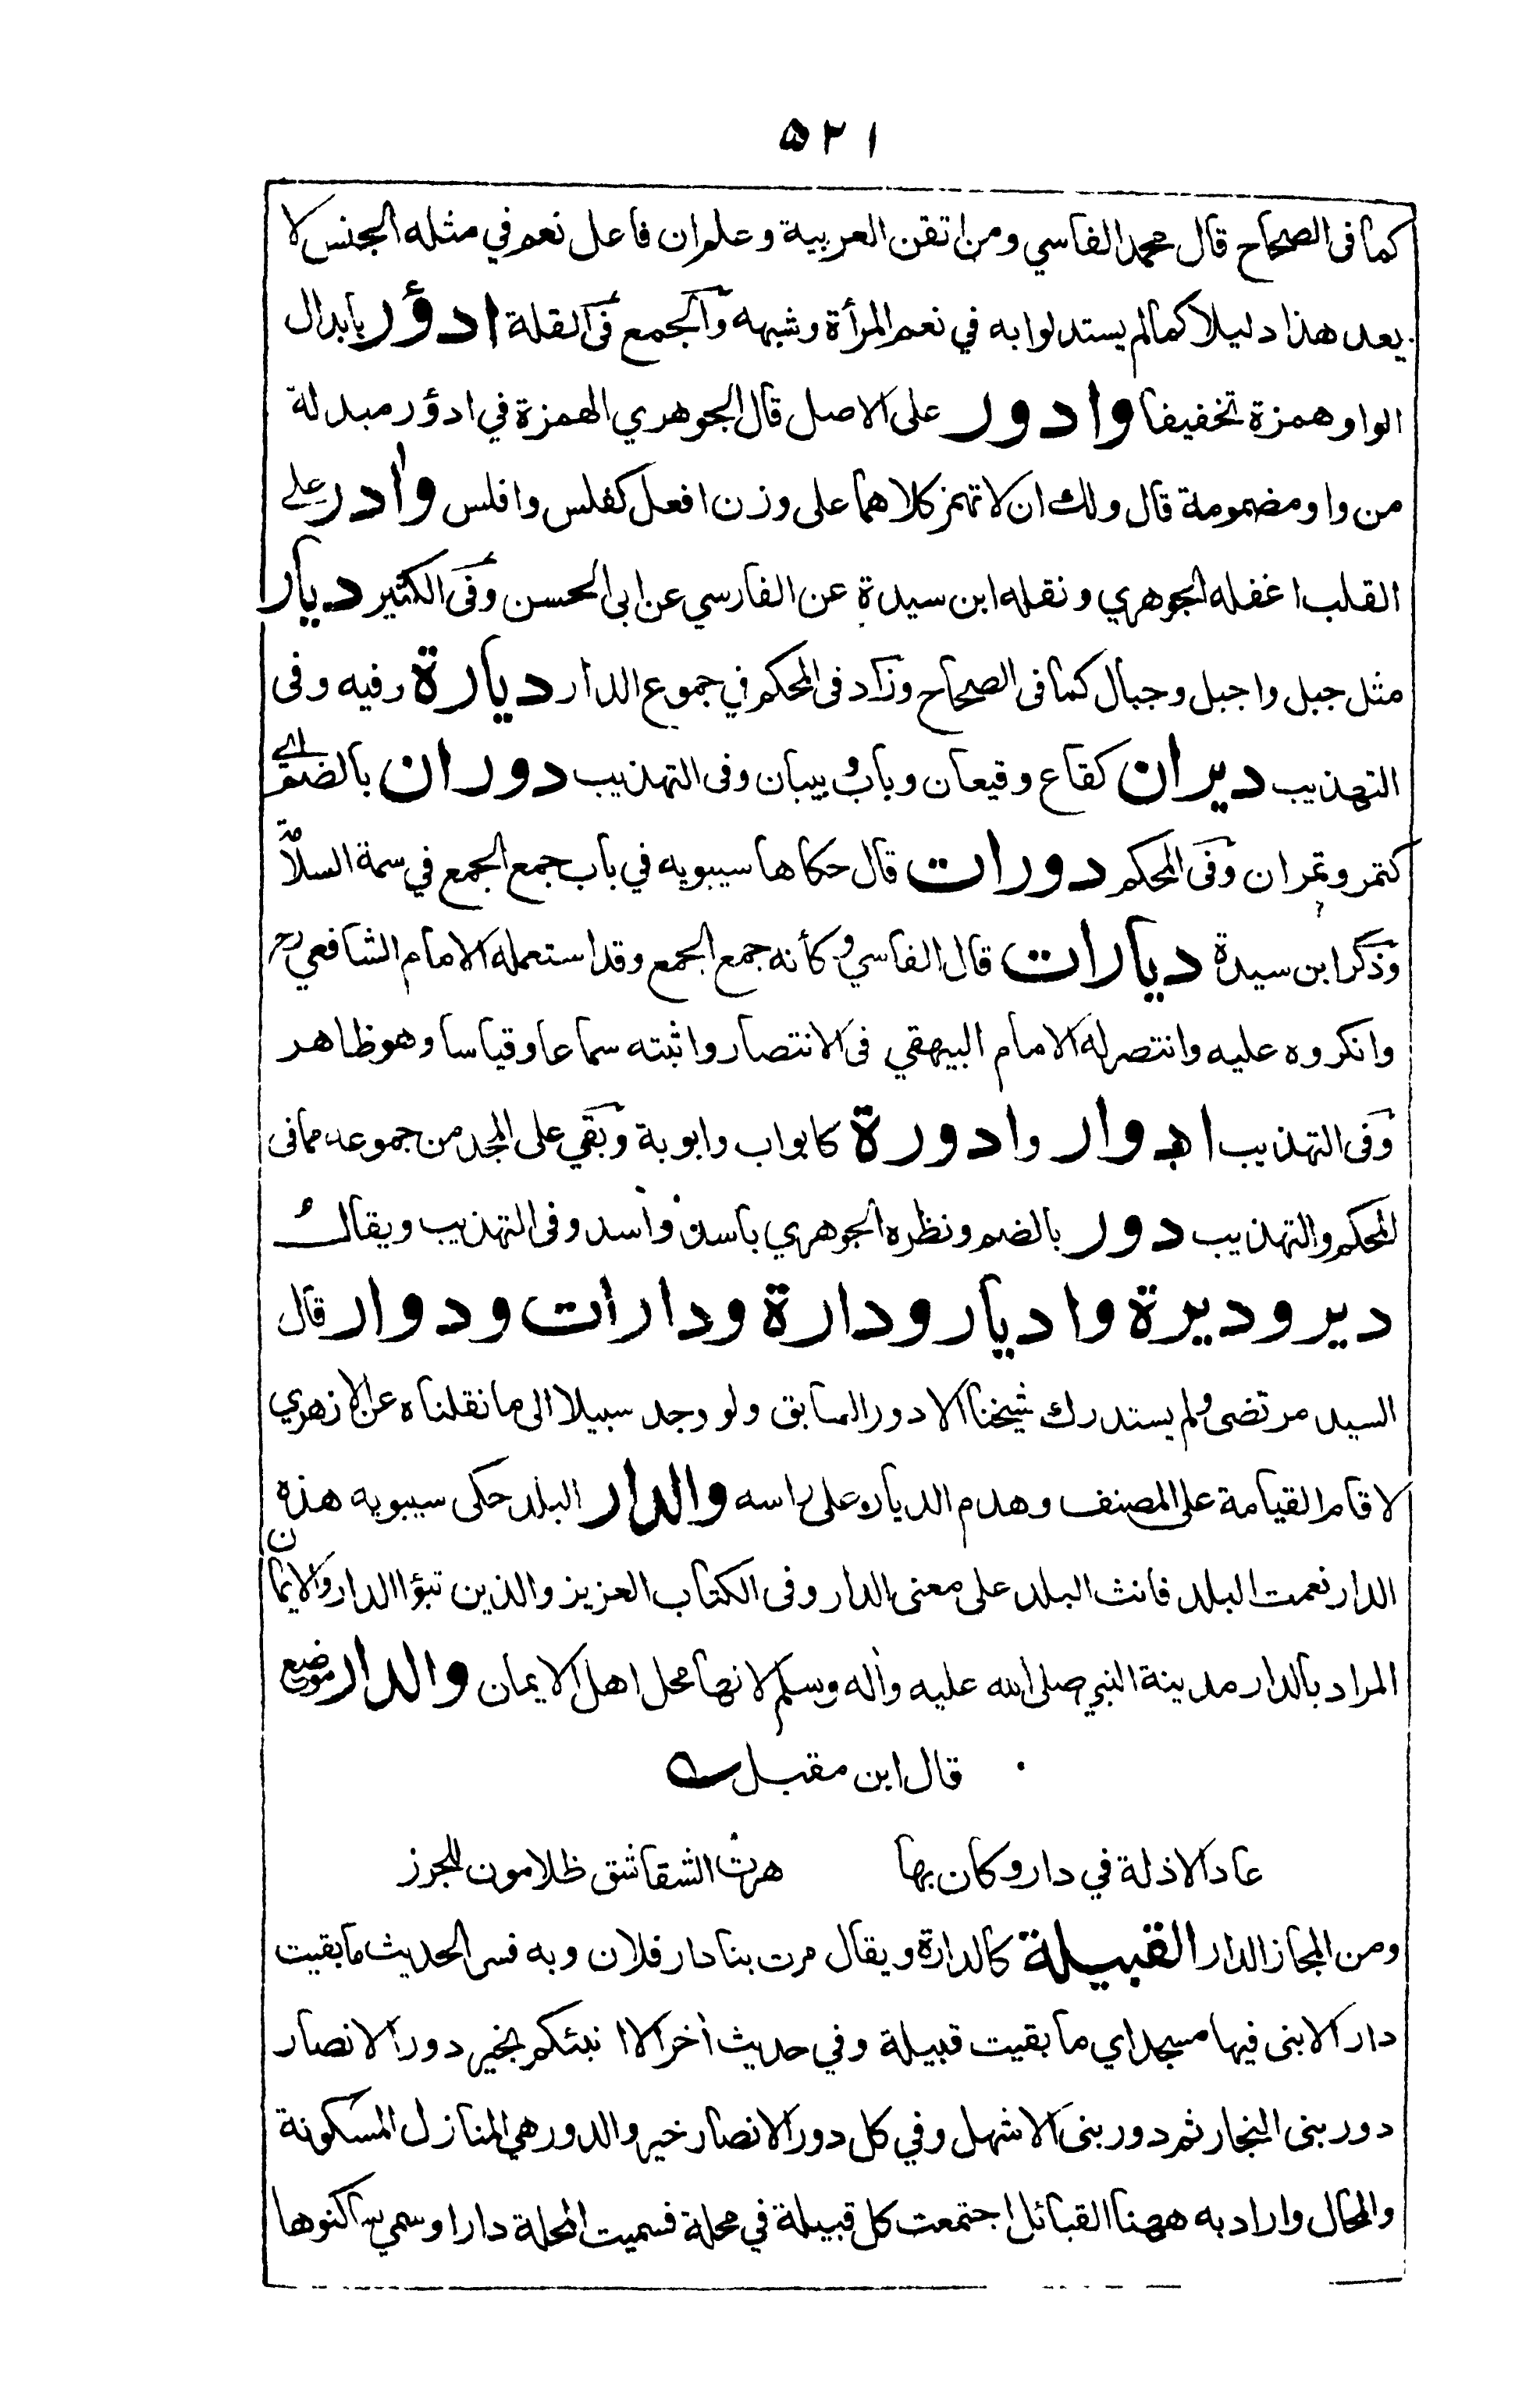 ۵۲۱
كما فى الصحاح قال محمد الفاسي ومن اتقن العربية وعلم ان فاعل نعم في مثله الجنس لا
يعد هذا دليلا كما لم يستدلوا به في نعم المرأة وشبهه والجمع فى القلة ادؤر بابدال
الواو همزة تخفيفا وادور على الاصل قال الجوهري الهمزة في ادؤر مبدلة
من واو مضمومة قال ولك ان لا تهمز كلاهما على وزن افعل كفلس وافلس وآدر على
القلب اغفله الجوهري ونقله ابن سيدة عن الفارسي عن ابى الحسن وفى الكثير ديار
مثل جبل واجبل وجبال كما فى الصحاح وزاد فى المحكم في جموع الدار ديارة وفيه وفى
التهذيب ديران كقاع وقيعان وباب وبيبان وفى التهذيب دوران بالضم اى
كتمر وتمران وفى المحكم دورات قال حكاها سيبويه في باب جمع الجمع في سمة السلامة
وذكر ابن سيدة ديارات قال الفاسي وكأنه جمع الجمع وقد استعمله الامام الشافعي رح
وانكروه عليه وانتصر له الامام البيهقي فى الانتصار واثبته سماعا وقياسا وهو ظاهر
وفى التهذيب ادوار وادورة كابواب وابوبة وبقي على المجد من جموعه مما فى
المحكم والتهذيب دور بالضم ونظره الجوهري باسد وأسد وفى التهذيب ويقال
دير وديرة واديار ودارة ودارات ودوار قال
السيد مرتضى ولم يستدرك شيخنا الا دور السابق ولو وجد سبيلا الى ما نقلناه عن الازهري
لاقام القيامة على المصنف وهدم الديار على راسه والدار البلد حكى سيبويه هذه
الدار نعمت البلد فانث البلد على معنى الدار وفى الكتاب العزيز والذين تبؤا الدار والايمان
المراد بالدار مدينة النبي صلى الله عليه وآله وسلم لانها محل اهل الايمان والدار موضع
قال ابن مقبل
عاد الاذلة في دار وكان بها هرت الشقاشق ظلامون للجزر
ومن المجاز الدار القبيلة كالدارة ويقال مرت بنا دار فلان وبه فسر الحديث ما بقيت
دار الا بنى فيها مسجد اي ما بقيت قبيلة وفي حديث آخر الا انبئكم بخير دور الانصار
دور بنى النجار ثم دور بنى الاشهل وفي كل دور الانصار خير والدور هي المنازل المسكونة
والمحال واراد به ههنا القبائل اجتمعت كل قبيلة في محلة فسميت المحلة دارا وسمي ساكنوها